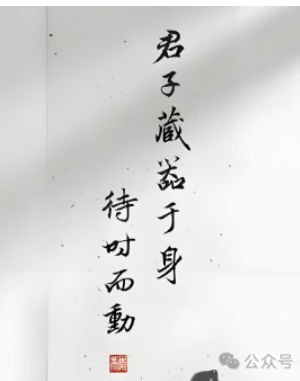 君子藏器于身
待时而動
公众号